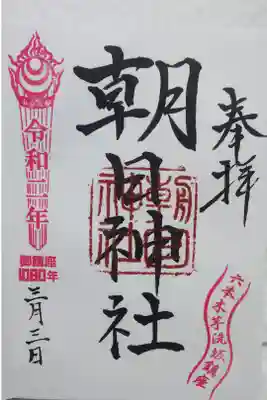 奉拝
朝日神社
令和二年
御鎮座
1080年
三月三日
六本木芋洗坂鎮座